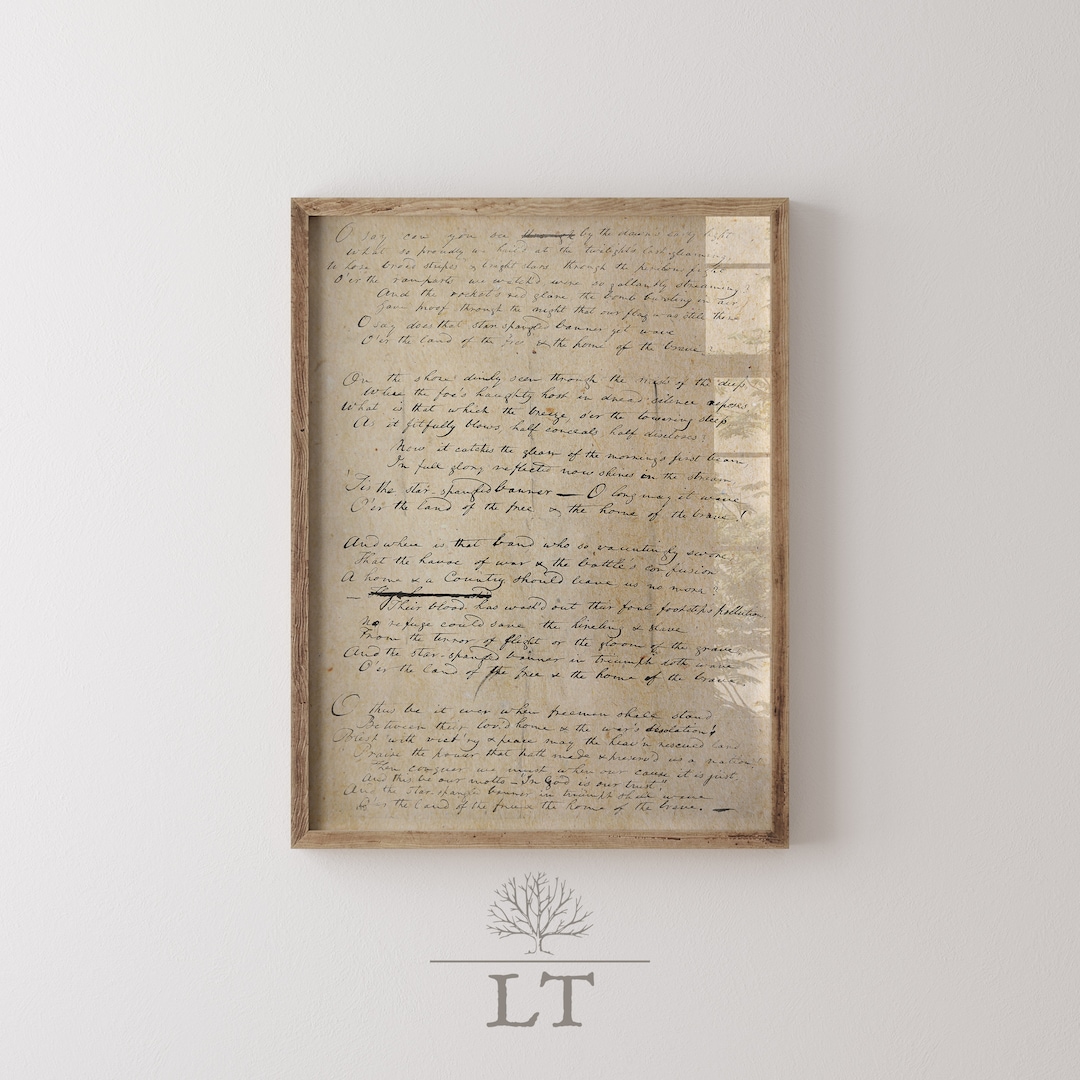 O say can you see ~~through~~ by the dawn's early light
What so proudly we hail'd at the twilight's last gleaming,
Whose broad stripes & bright stars through the perilous fight
O'er the ramparts we watch'd were so gallantly streaming?
And the rocket's red glare, the bomb bursting in air,
Gave proof through the night that our flag was still there
O say does that star-spangled banner yet wave
O'er the land of the free & the home of the brave
On the shore dimly seen through the mists of the deep,
Where the foe's haughty host in dread silence reposes
What is that which the breeze, o'er the towering steep
As it fitfully blows, half conceals, half discloses?
Now it catches the gleam of the morning's first beam
In full glory reflected now shines in the stream
'Tis the star-spangled banner — O long may it wave
O'er the land of the free & the home of the brave!
And where is that band who so vauntingly swore,
That the havoc of war & the battle's confusion
A home & a Country should leave us no more?
— Their blood has wash'd out their foul footsteps pollution
No refuge could save the hireling & slave
From the terror of flight or the gloom of the grave
And the star-spangled banner in triumph doth wave
O'er the land of the free & the home of the brave.
O thus be it ever when freemen shall stand
Between their lov'd home & the war's desolation!
Blest with vict'ry & peace may the heav'n rescued land
Praise the power that hath made & preserv'd us a nation!
Then conquer we must when our cause it is just,
And this be our motto — "In God is our trust,"
And the star-spangled banner in triumph shall wave
O'er the land of the free & the home of the brave. —
LT